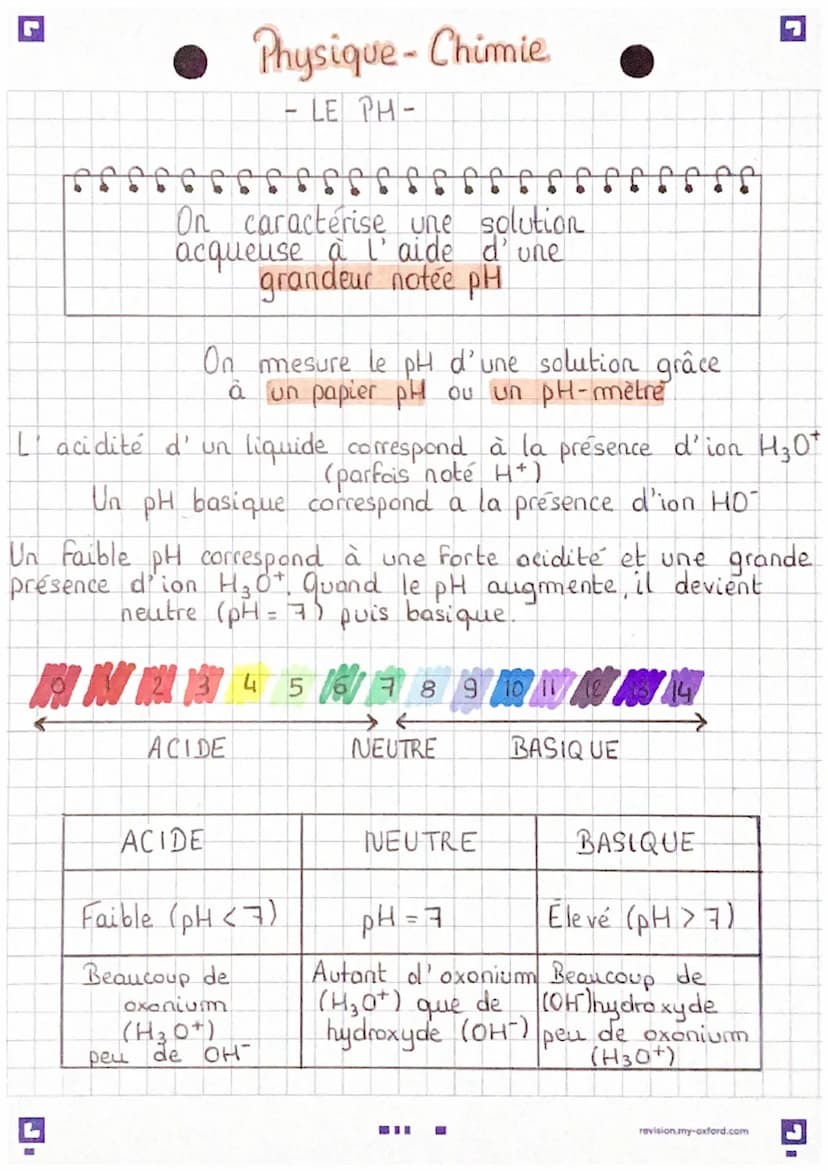 Physique - Chimie
- LE PH -
On caractérise une solution
acqueuse à l'aide d'une
grandeur notée pH
On mesure le pH d'une solution grâce
à un papier pH ou un pH-mètre
L'acidité d'un liquide correspond à la présence d'ion H₃O⁺
(parfois noté H⁺)
Un pH basique correspond a la présence d'ion HO⁻
Un faible pH correspond à une forte acidité et une grande
présence d'ion H₃O⁺. Quand le pH augmente, il devient
neutre (pH = 7) puis basique.
0 1 2 3 4 5 6 7 8 9 10 11 12 13 14
ACIDE NEUTRE BASIQUE
ACIDE NEUTRE BASIQUE
Faible (pH < 7) pH = 7 Élevé (pH > 7)
Beaucoup de
oxonium
(H₃O⁺)
peu de OH⁻
Autant d'oxonium
(H₃O⁺) que de
hydroxyde (OH⁻)
Beaucoup de
(OH⁻)hydroxyde
peu de oxonium
(H3O⁺)
revision.my-oxford.com